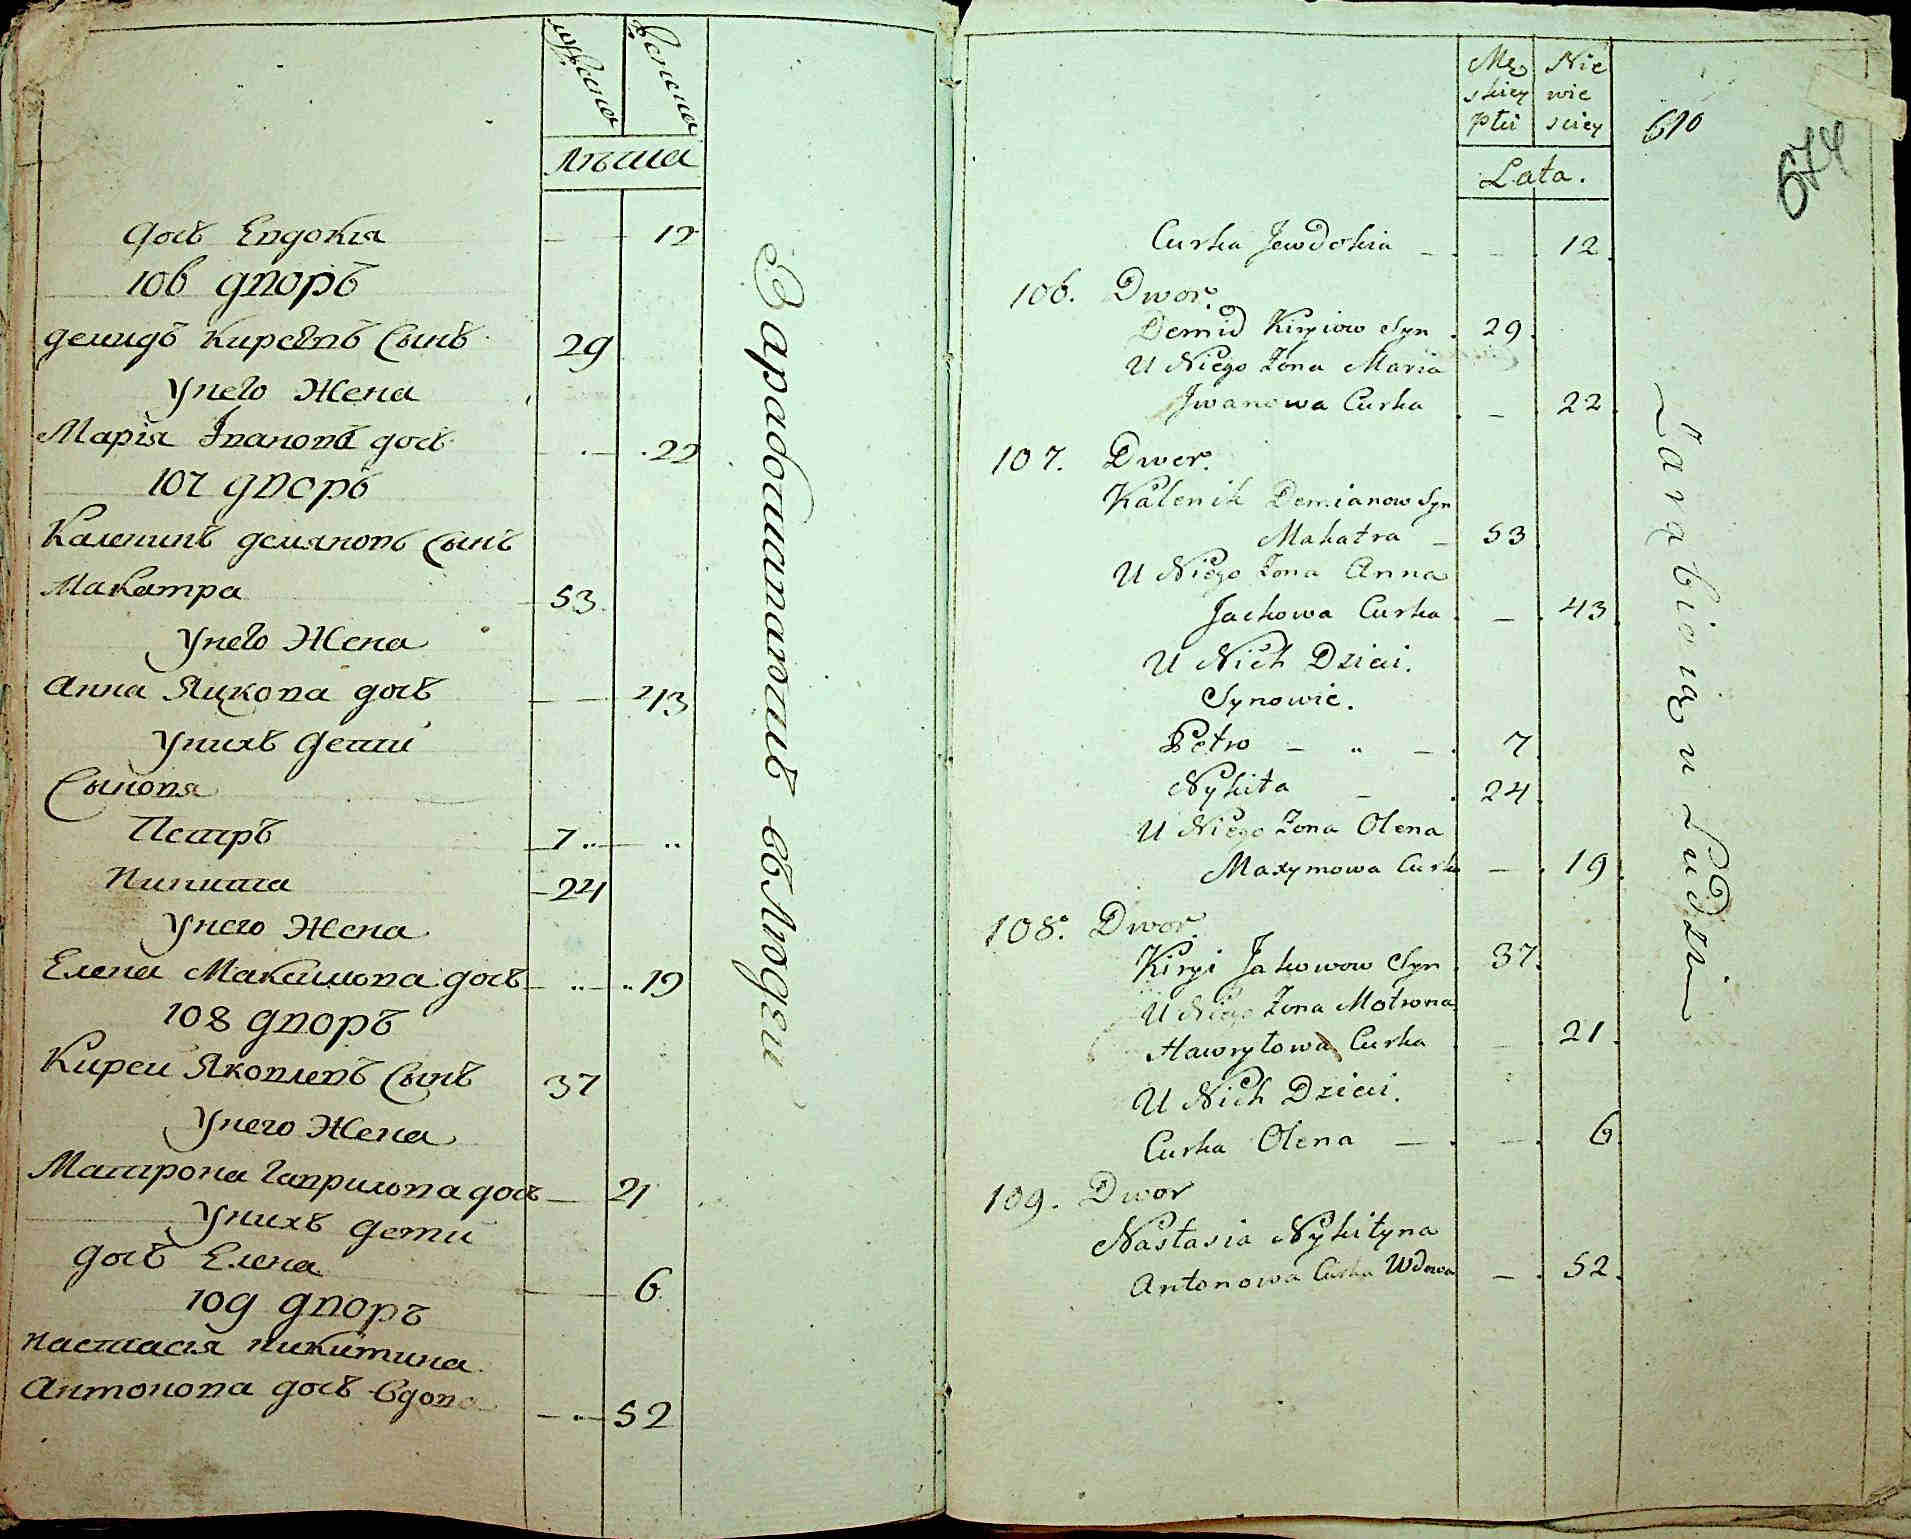 мужеска
женска
лѣта
дочь Евдокия 12
106 дворъ
демидъ Киреевъ Сынъ 29
унего Жена
Марія Іванова дочь 22
107 дворъ
Каленикъ демяновъ Сынъ
Макатра 53
унего Жена
Анна Яцкова дочь 43
унихъ дети
Сыновя
Петръ 7
Никита 24
унего Жена
Елена Максимова дочь 19
108 дворъ
Киреи Яковлевъ Сынъ 37
унего Жена
Матрона Гаврилова дочь 21
унихъ дети
дочь Елена 6
109 дворъ
Настасія Никитина
Антонова дочь вдова 52
Заработивающие Люди
Męskiey Płci
Niewieściey
Lata.
610
674
Curka Jewdokia 12
106. Dwor.
Demid Kiryiow Syn 29
U Niego Żona Maria
Jwanowa Curka 22
107. Dwor.
Kalenik Demianow Syn
Makatra 53
U Niego Żona Anna
Jackowa Curka 43
U Nich Dzieci.
Synowie.
Petro 7
Nykita 24
U Niego Żona Olena
Maxymowa Curka 19
108. Dwor.
Kiryi Jakowow Syn 37
U Niego Żona Motrona
Hawryłowa Curka 21
U Nich Dzieci.
Curka Olena 6
109. Dwor
Nastasia Nykityna
Antonowa Curka Wdowa 52
Zarabiaiący Ludzi